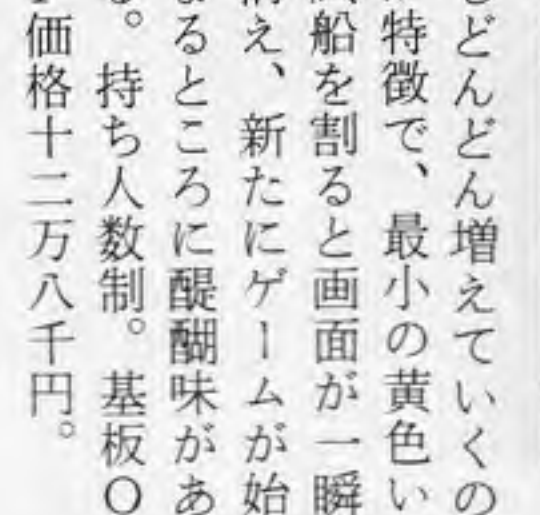 どんどん増えていくの
特徴で、最小の黄色い
船を割ると画面が一瞬
え、新たにゲームが始
まるところに醍醐味があ
。持ち人数制。基板O
価格十二万八千円。